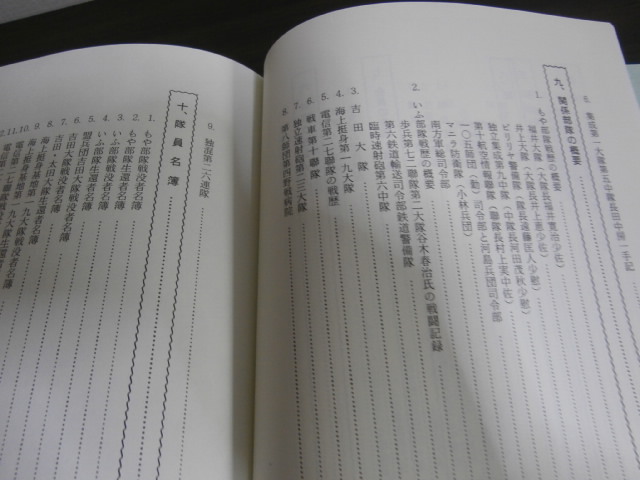 九、関係部隊の概要
1. もや部隊戦歴の概要
福井大隊(大隊長福井寛治少佐)
井上大隊(大隊長井上恵少佐)
ビリビリ警備隊
第九中隊(中隊長河田茂秋少尉)
第十航空情報聯隊(聯隊長村上実中佐)
一〇五師団(勤)司令部と河島兵団司令部
マニラ防衛隊(小林兵団)
南方軍総司令部
2. いふ部隊戦歴の概要
歩兵第七一聯隊第二大隊谷木春治氏の戦闘記録
第六鉄道輸送司令部鉄道警備隊
臨時速射砲第六中隊
3. 吉田大隊
4. 海上挺身第一九大隊
5. 電信第二七聯隊の戦歴
6. 戦車第十聯隊
7. 独立速射砲第二三大隊
8. 第八師団第四野戦病院
9. 独混第二六連隊
十、隊員名簿
1. もや部隊戦没者名簿
2. もや部隊生還者名簿
3. いふ部隊戦没者名簿
4. いふ部隊生還者名簿
5. 盟兵団
6. 吉田大隊戦没者名簿
7. 吉田大隊生還者名簿
8. 海上挺身
9. 海上挺身基地第一九大隊戦没者名簿
10.
11.